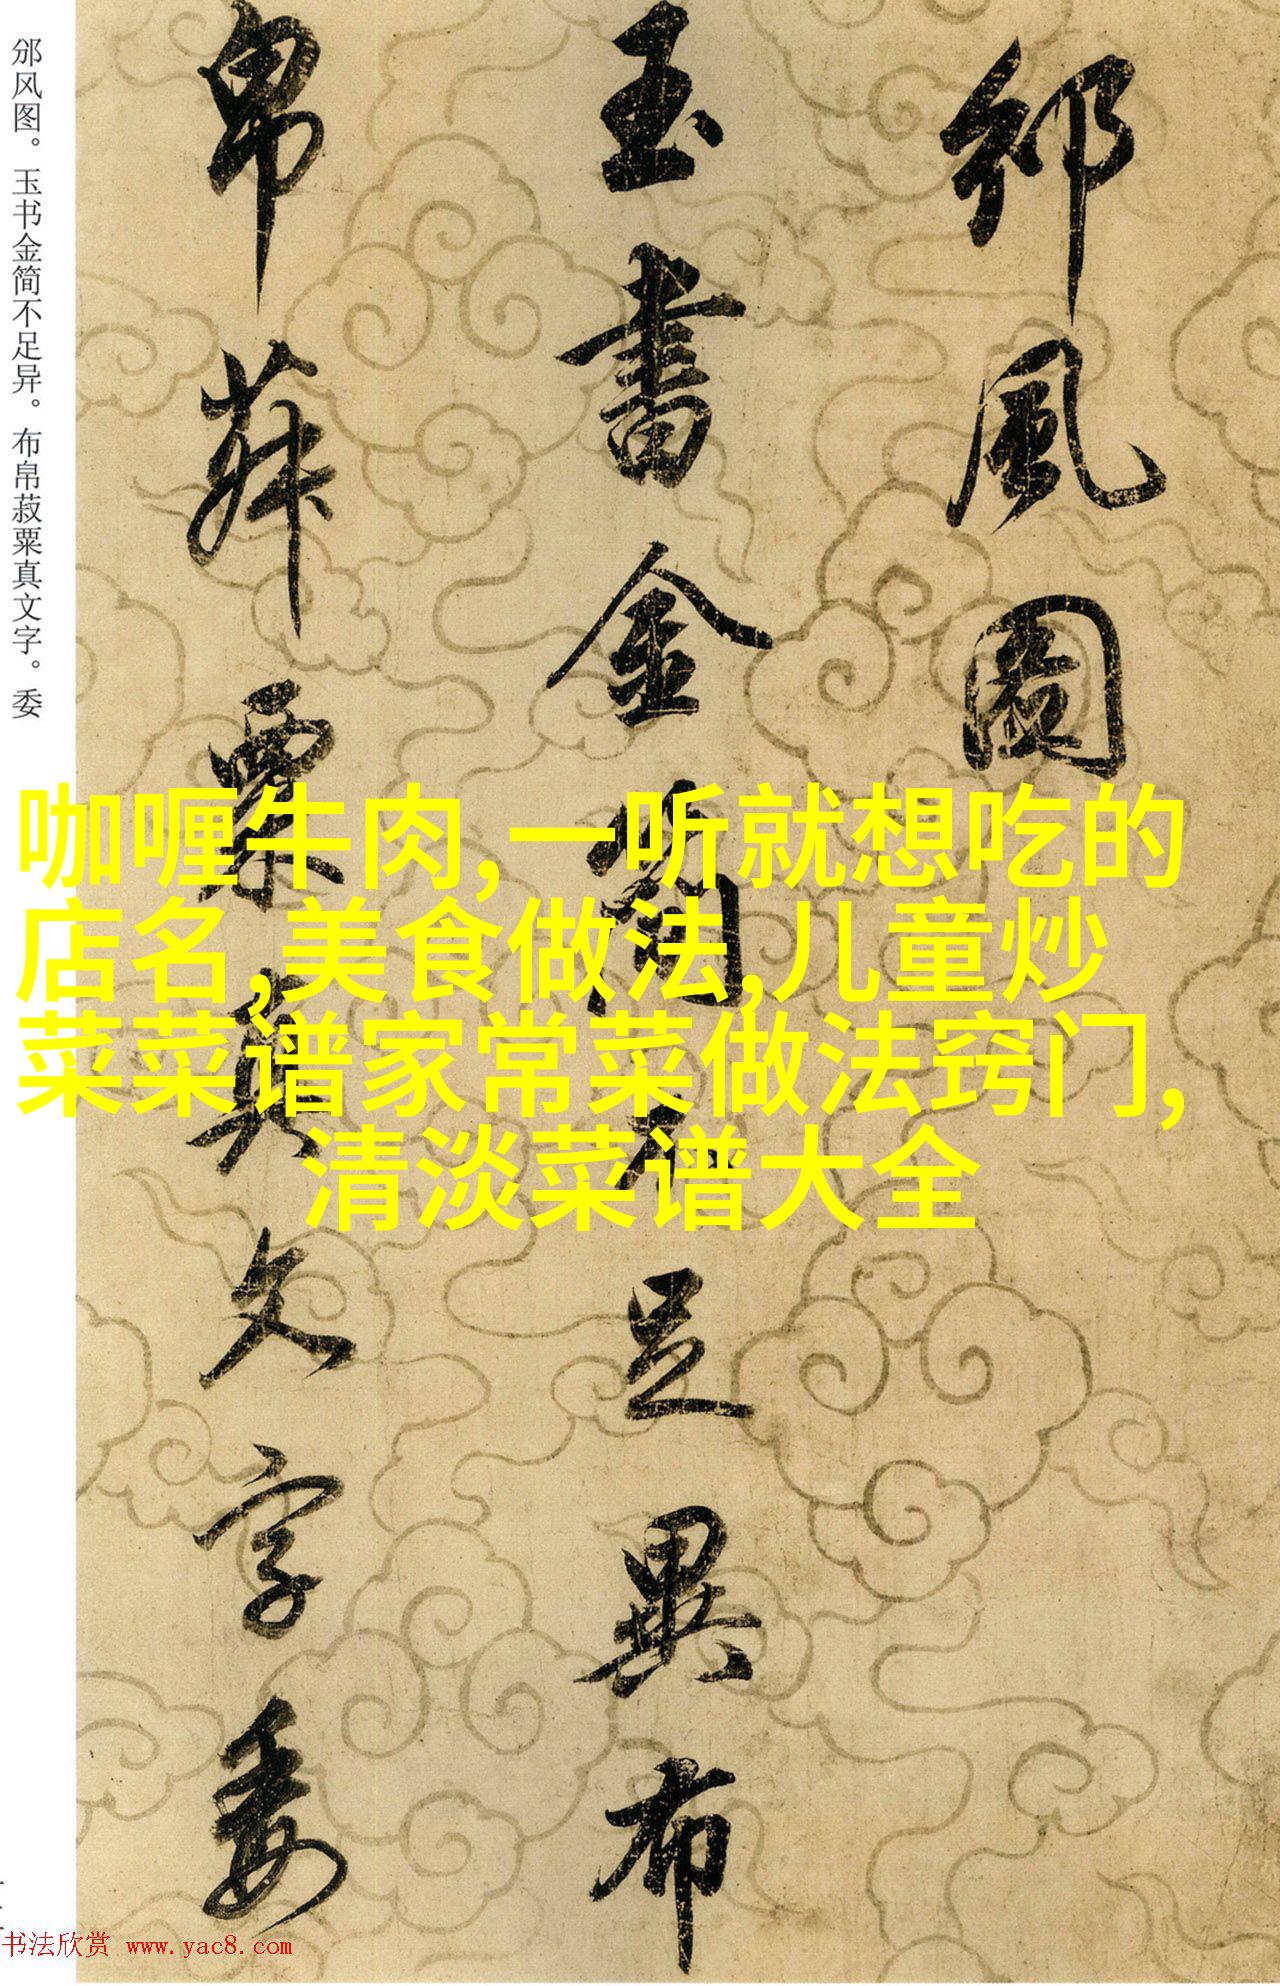 邠風圖
玉書金簡不足異布
帛菽粟真文字委
邠风图。玉书金简不足异。布帛菽粟真文字。委
咖喱牛肉,一听就想吃的
店名,美食做法,儿童炒
菜菜谱家常菜做法窍门,
清淡菜谱大全
书法欣赏 www.yac8.com